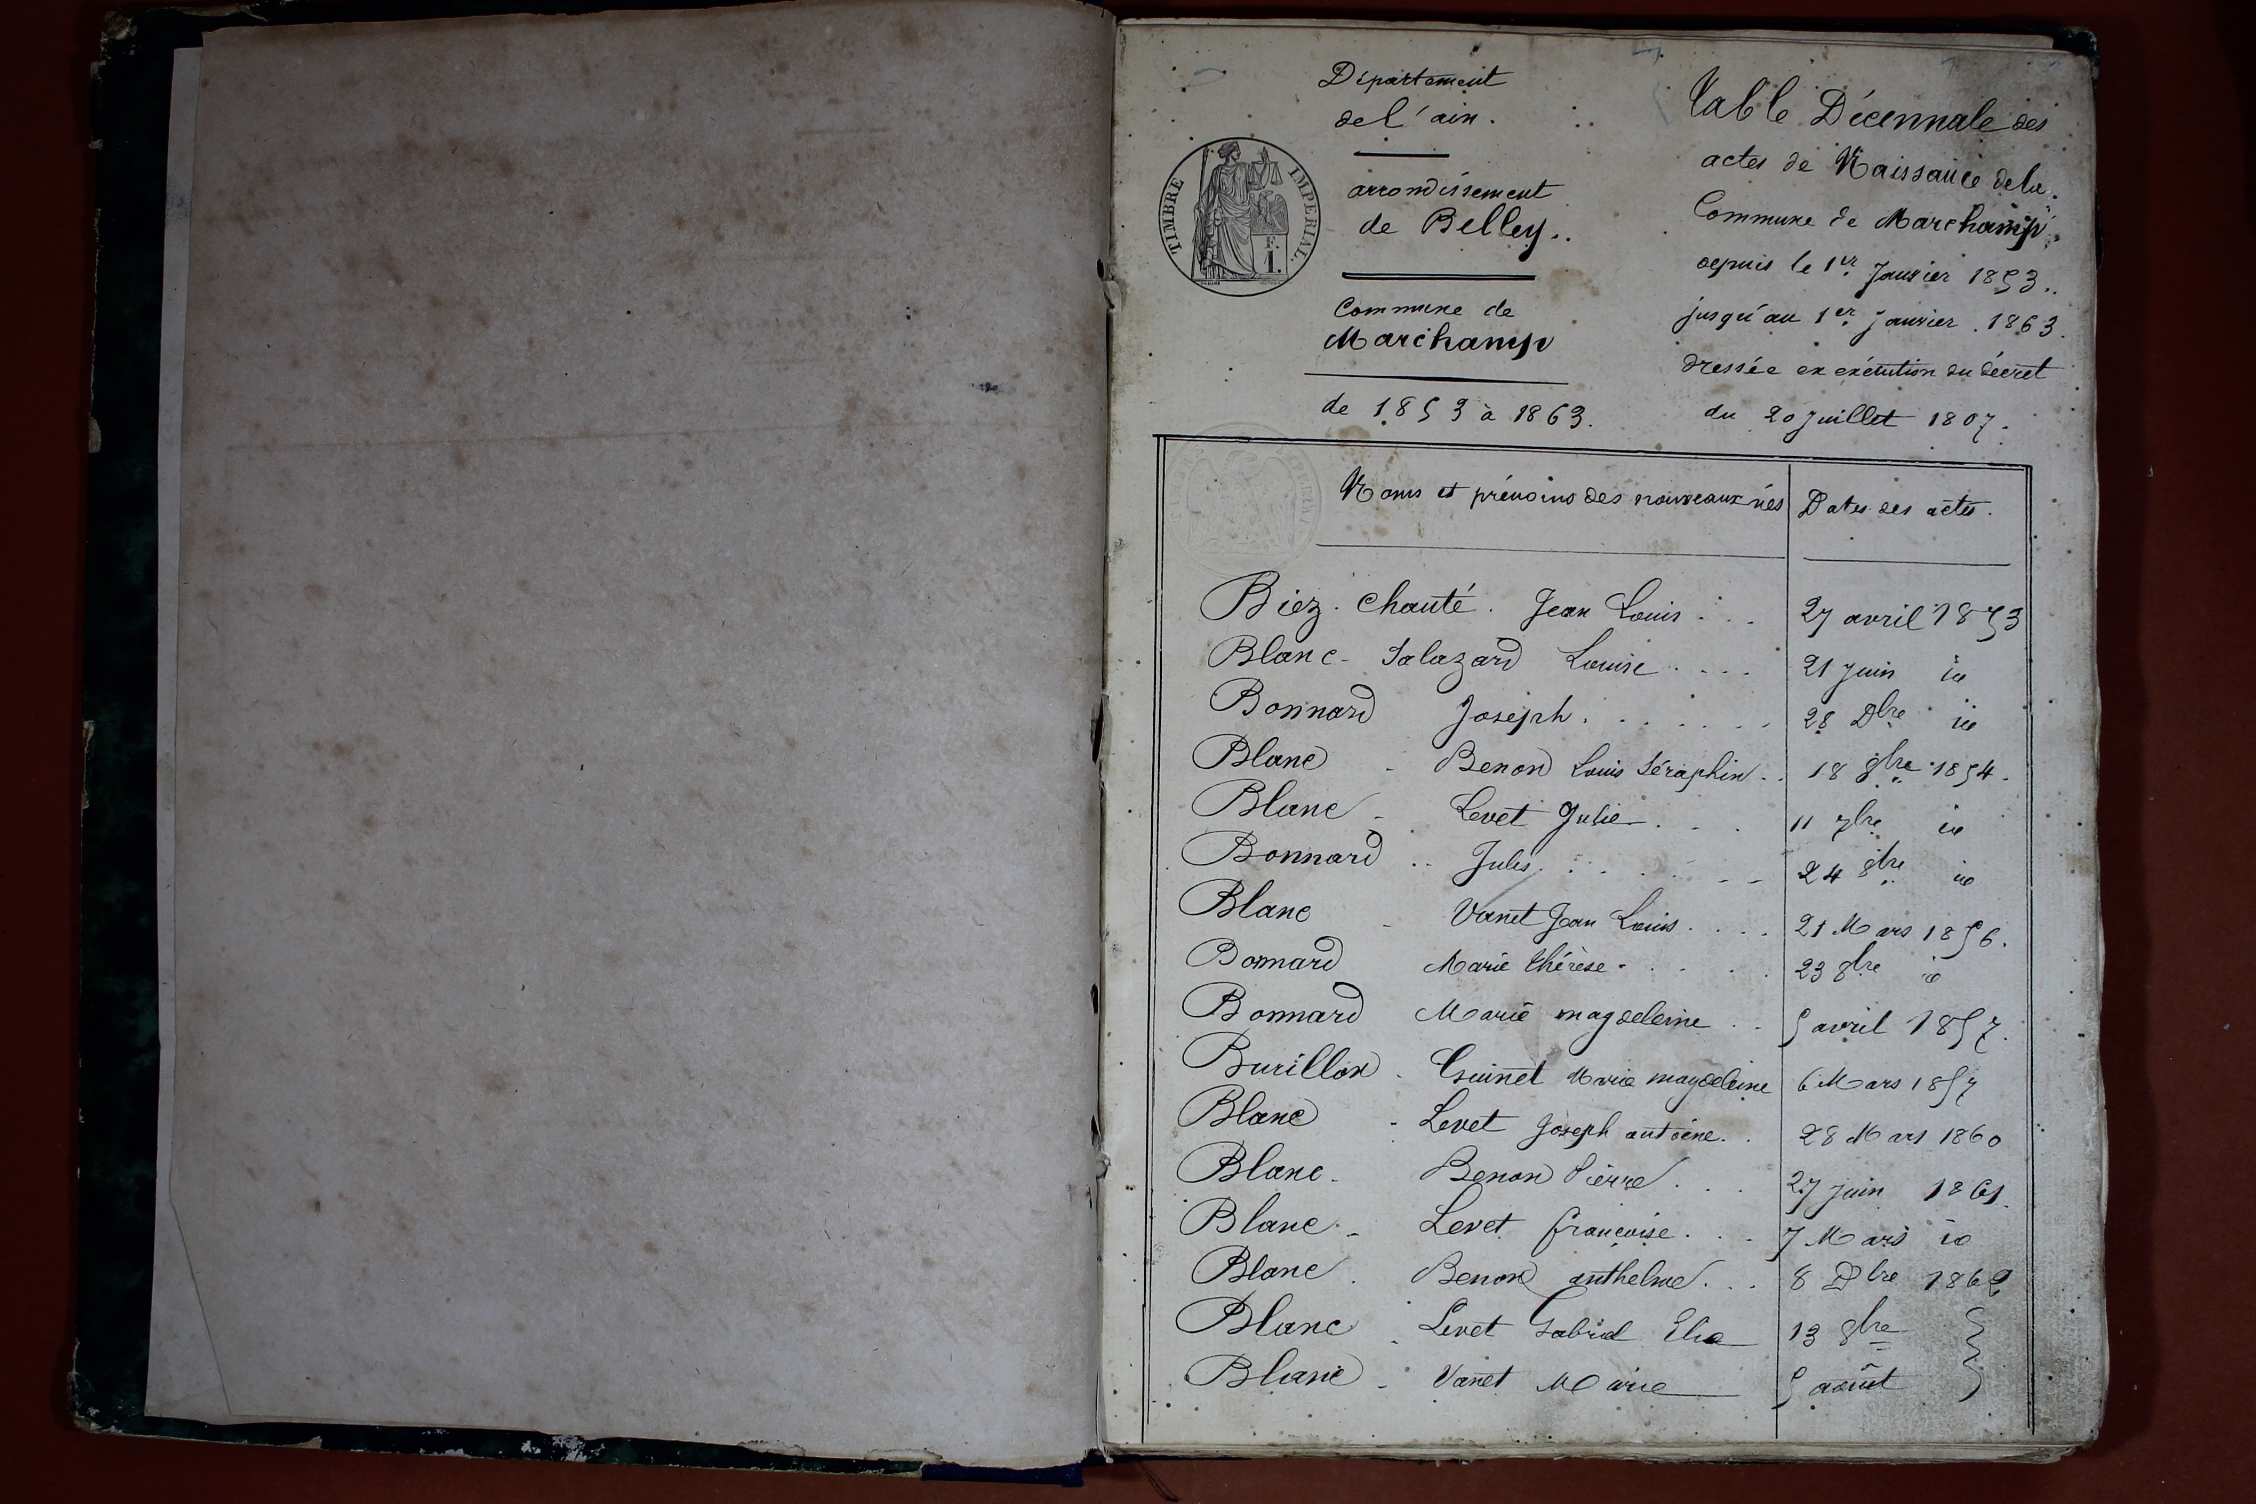 Département
de l'ain.
TIMBRE IMPERIAL.
F.
1.
arrondissement
de Belley..
Commune de
Marchamp
de 1853 à 1863.
Table Décennale des
actes de Naissance de la
Commune de Marchamp
depuis le 1er Janvier 1853..
jusqu'au 1er Janvier . 1863.
dressée en exécution du décret
du 20 Juillet 1807.
Noms et prénoms des nouveaux nés Dates des actes.
Biez . Chanté . Jean Louis . . . 27 avril 1853
Blanc - Salazard Louise . . . . 21 Juin id
Bonnard Joseph . . . . . . 28 Dbre id
Blanc - Benon Louis Séraphin . . 18 9bre 1854.
Blanc - Levet Julie . . . 11 7bre id
Bonnard .. Jules . . . . . 24 8bre id
Blanc - Vanet Jean Louis . . . . 21 Mars 1856.
Bonnard Marie thérèse . . . . . 23 8bre id
Bonnard Marie magdeleine . . 5 avril 1857.
Burillon . Guinet Marie magdeleine 6 Mars 1857
Blanc - Levet Joseph antoine . . 28 Mars 1860
Blanc - Benon Pierre . . . 27 Juin 1861.
Blanc - Levet françoise . . . 7 Mars id
Blanc . Benon anthelme . . . 8 Dbre 1862
Blanc - Levet Gabriel Elie 13 9bre
Blanc - Vanet Marie 5 août